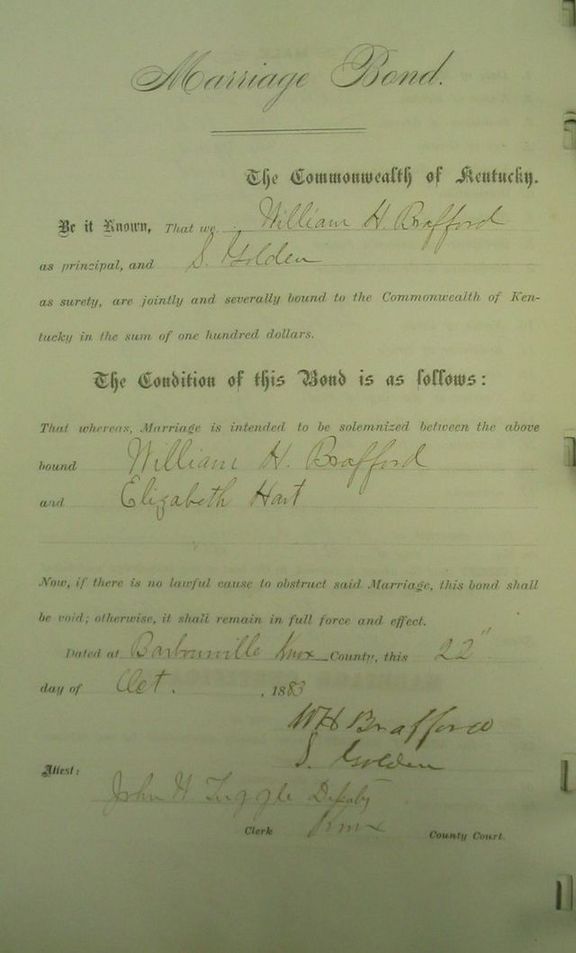 Marriage Bond.
The Commonwealth of Kentucky.
Be it Known, That we William H. Brafford
as principal, and S. Golden
as surety, are jointly and severally bound to the Commonwealth of Ken-
tucky in the sum of one hundred dollars.
The Condition of this Bond is as follows:
That whereas, Marriage is intended to be solemnized between the above
bound William H. Brafford
and Elizabeth Hart
Now, if there is no lawful cause to obstruct said Marriage, this bond shall
be void; otherwise, it shall remain in full force and effect.
Dated at Barbourville Knox County, this 22"
day of Oct. , 1883
WH Brafford
S. Golden
Attest:
John H Tuggle Deputy
Clerk Knox County Court.